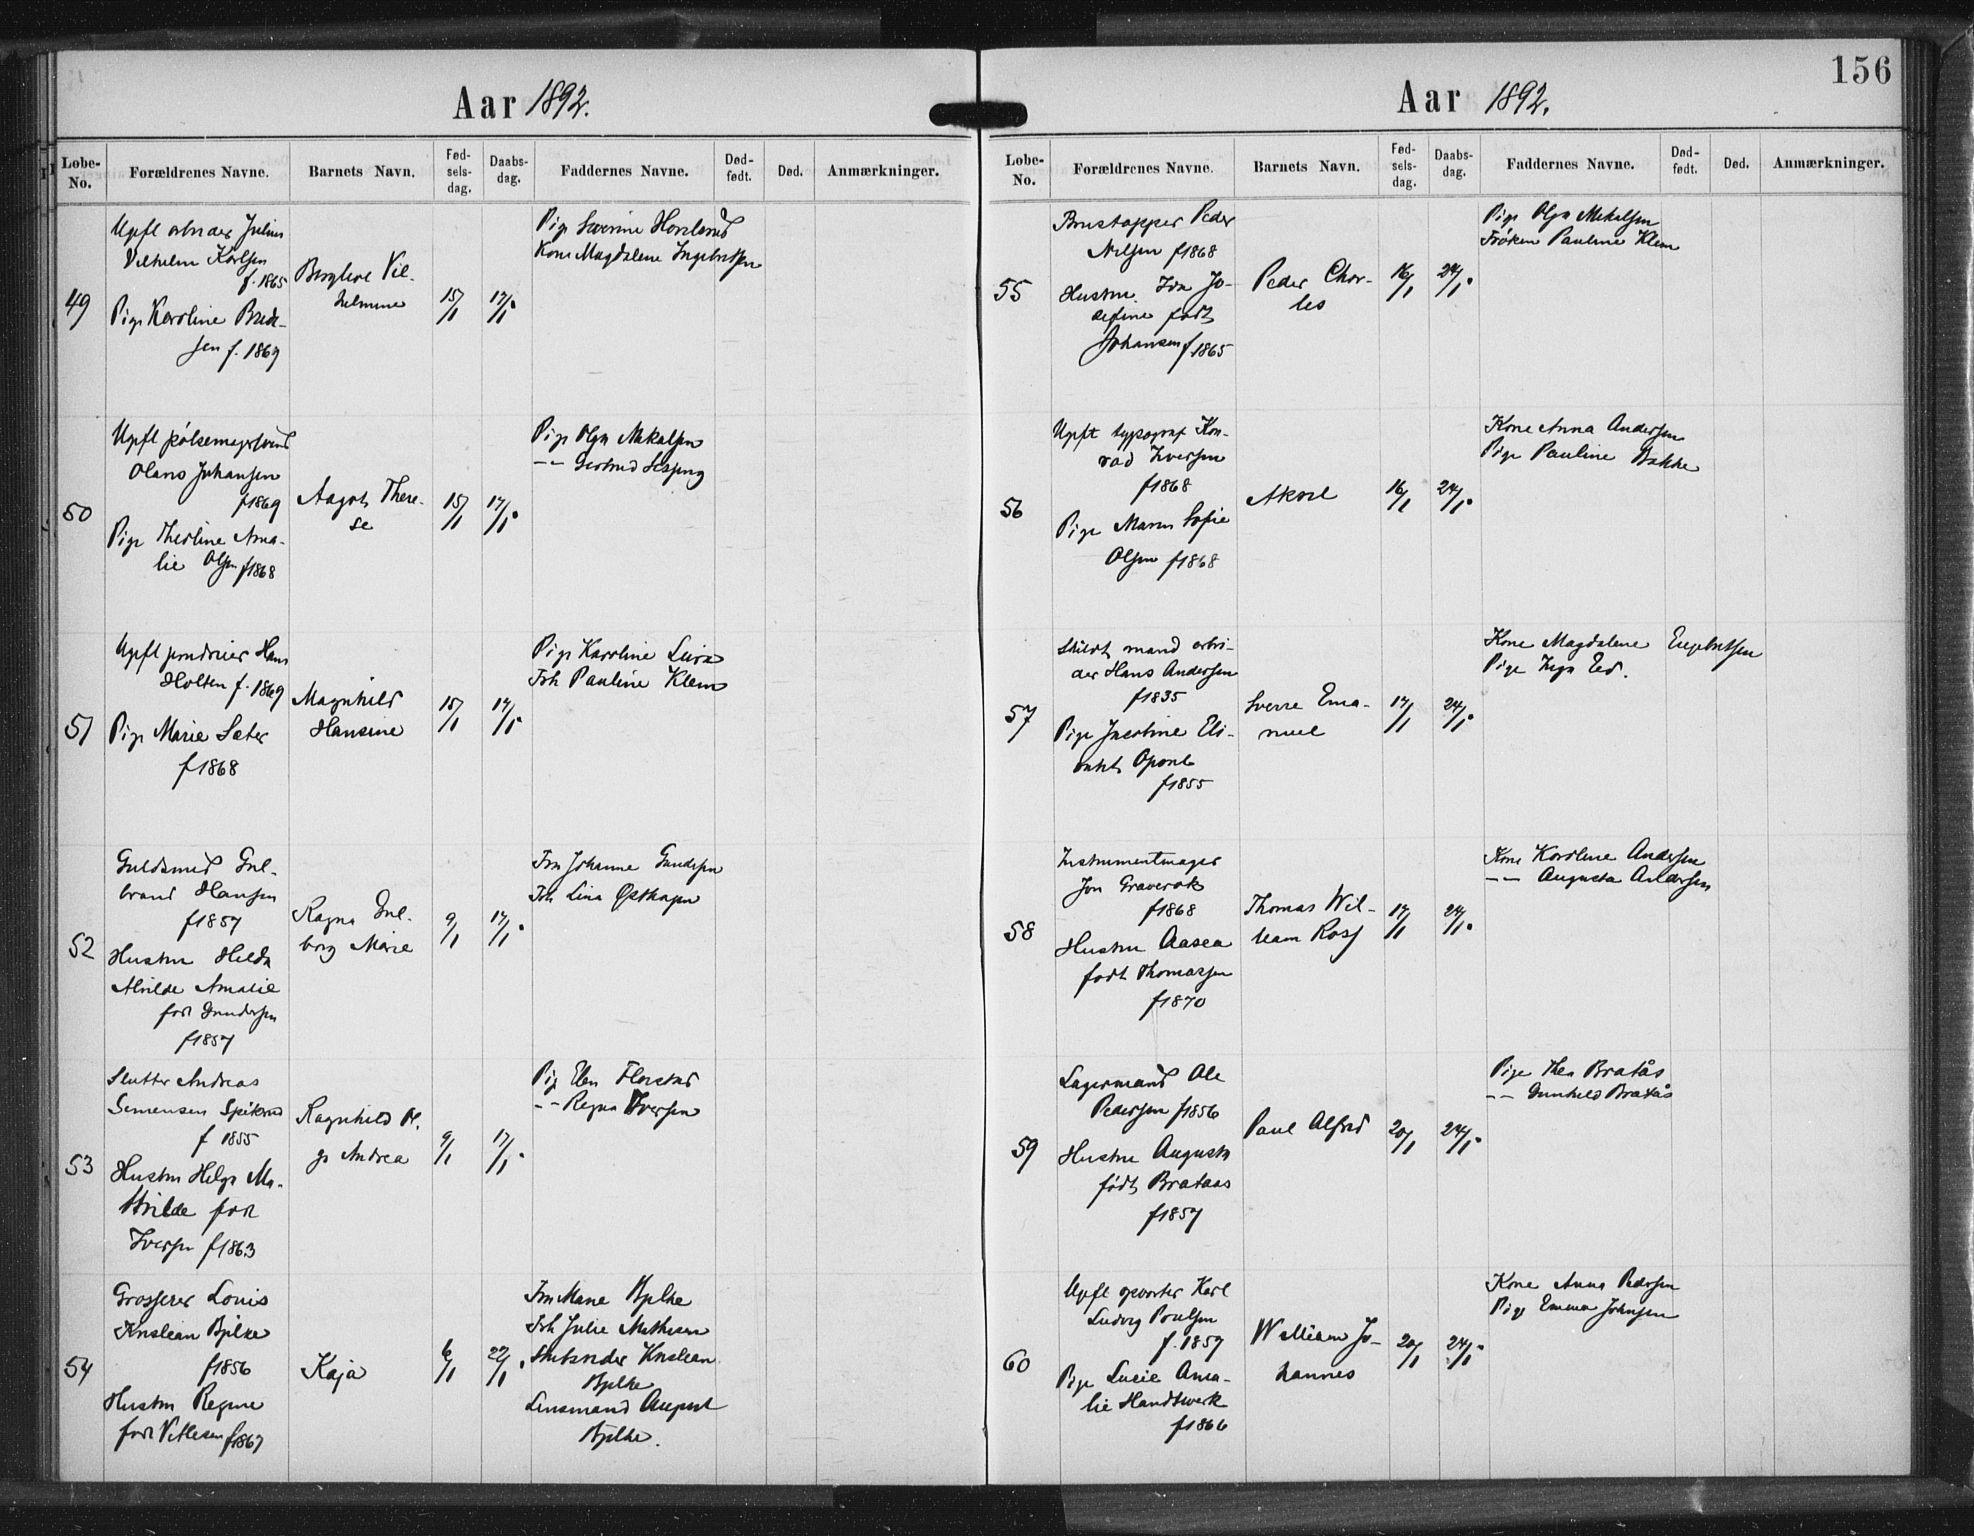 Aar 1892.
Løbe-No.
Forældrenes Navne.
Barnets Navn.
Fød-selsdag.
Daabsdag.
Faddernes Navne.
Død-født.
Død.
Anmærkninger.
49
Upft arbeider Julius
Vilhelm Karlsen
f. 1865
Pige Karoline
f. 1869
Vil-
helmine
15/1
17/1.
Pige Severine
Kone Magdalene Ingebretsen
50
Upft pølsemagersvend
Olaus Johansen
f1869
Pige Ama-
lie Olsen f1868
Aagot There-
se
15/1
17/1.
Pige Olga Mikalsen
-- Gertrud
51
Upft Hans
Holten f. 1869
Pige Marie Sæter
f1868
Magnhild
Hansine
15/1
17/1.
Pige Karoline
Frk Pauline Klem
52
Guldsmed Gul-
brand Hansen
f1857
Hustru Hilda
Alvilde Amalie
født Gundersen
f1857
Ragna Gul-
borg Marie
9/1
17/1.
Fru Johanne Gundersen
Frk Lina
53
Slutter Andreas
Simensen
f 1855
Hustru Helga Ma-
thilde født
Iversen f1863
Ragnhild
Andrea
9/1
17/1.
Pige Elen
-- Ragna Iversen
54
Grosserer Louis
Kristian Bjelke
f1856
Hustru Regine
født f1867
Kaja
6/1
22/1.
Fru Marie Bjelke
Frk Julie Mathisen
Kristian
Bjelke
Lensmand August
Bjelke.
156
Aar 1892.
Løbe-No.
Forældrenes Navne.
Barnets Navn.
Fød-selsdag.
Daabsdag.
Faddernes Navne.
Død-født.
Død.
Anmærkninger.
55
Brustapper Peder
Nilsen f1868
Hustru Ida Jo-
sefine født
Johansen f1865
Peder Char-
les
16/1
24/1.
Pige Olga Mikalsen
Frøken Pauline Klem
56
Upft typograf Kon-
rad Iversen
f1868
Pige Maren Sofie
Olsen f1868
Aksel
16/1
24/1.
Kone Anna Andersen
Pige Pauline Bakke
57
Skildt mand arbei-
der Hans Andersen
f1835
Pige Eli-
f1855
Sverre Ema-
nuel
17/1
24/1.
Kone Magdalene Engebretsen
Pige Inga Eid.
58
Instrumentmager
Jon Graverok
f1868
Hustru Aasea
født Thomassen
f1870
Thomas Wil-
liam Ross
17/1
24/1.
Kone Karoline Andersen
-- Augusta Andersen
59
Lagermand Ole
Pedersen f1856
Hustru Augusta
født Brataas
f1857
Paul Alfred
20/1
24/1.
Pige Thea Bratås
-- Gunhild Bratås
60
Upft Karl
Ludvig Poulsen
f. 1857
Pige Lucie Ama-
lie Handtwerk
f1866
William Jo-
hannes
20/1
24/1.
Kone Anna Pedersen
Pige Emma Johnsen